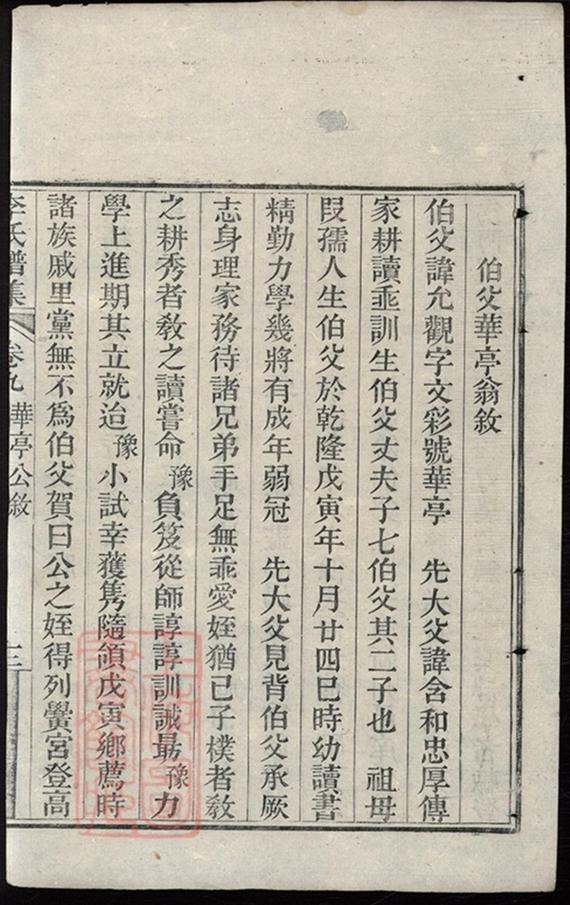 伯父華亭翁敘
伯父諱允觀字文彩號華亭　先大父諱含和忠厚傳
家耕讀垂訓生伯父丈夫子七伯父其二子也　祖母
段孺人生伯父於乾隆戊寅年十月廿四巳時幼讀書
精勤力學幾將有成年弱冠　先大父見背伯父承厥
志身理家務待諸兄弟手足無乖愛姪猶己子樸者敎
之耕秀者敎之讀嘗命豫負笈從師諄諄訓誡勗豫力
學上進期其立就迨豫小試幸獲雋隨領戊寅鄉薦時
諸族戚里黨無不爲伯父賀曰公之姪得列黌宮登高
李氏譜集　卷九　華亭公敘　十三